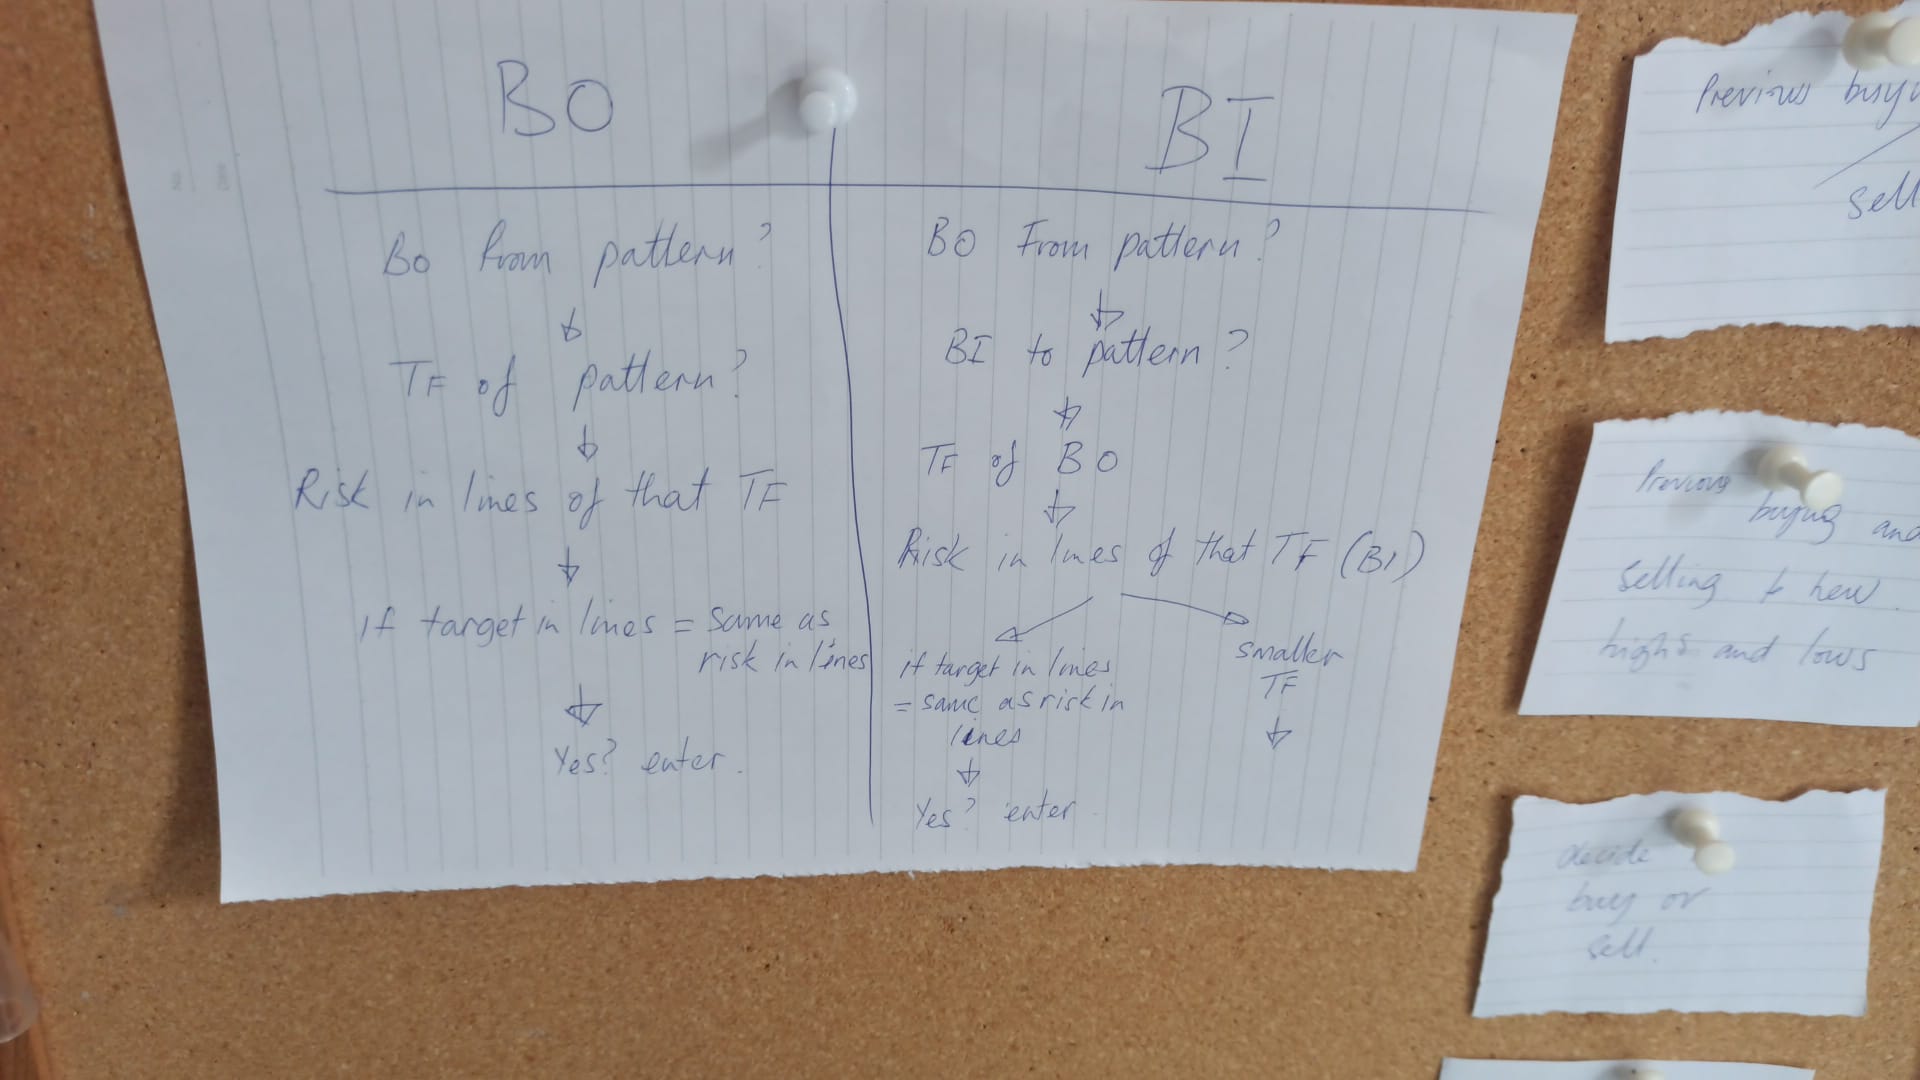 BO
BO from pattern?
TF of pattern?
Risk in lines of that TF
If target in lines = same as
risk in lines
Yes? enter.
BI
BO From pattern?
BI to pattern?
TF of BO
Risk in lines of that TF (BI)
if target in lines
= same as risk in
lines
Yes? enter.
smaller
TF
Previous
sell
Previous
buying and
selling + new
highs and lows
decide
buy or
sell.